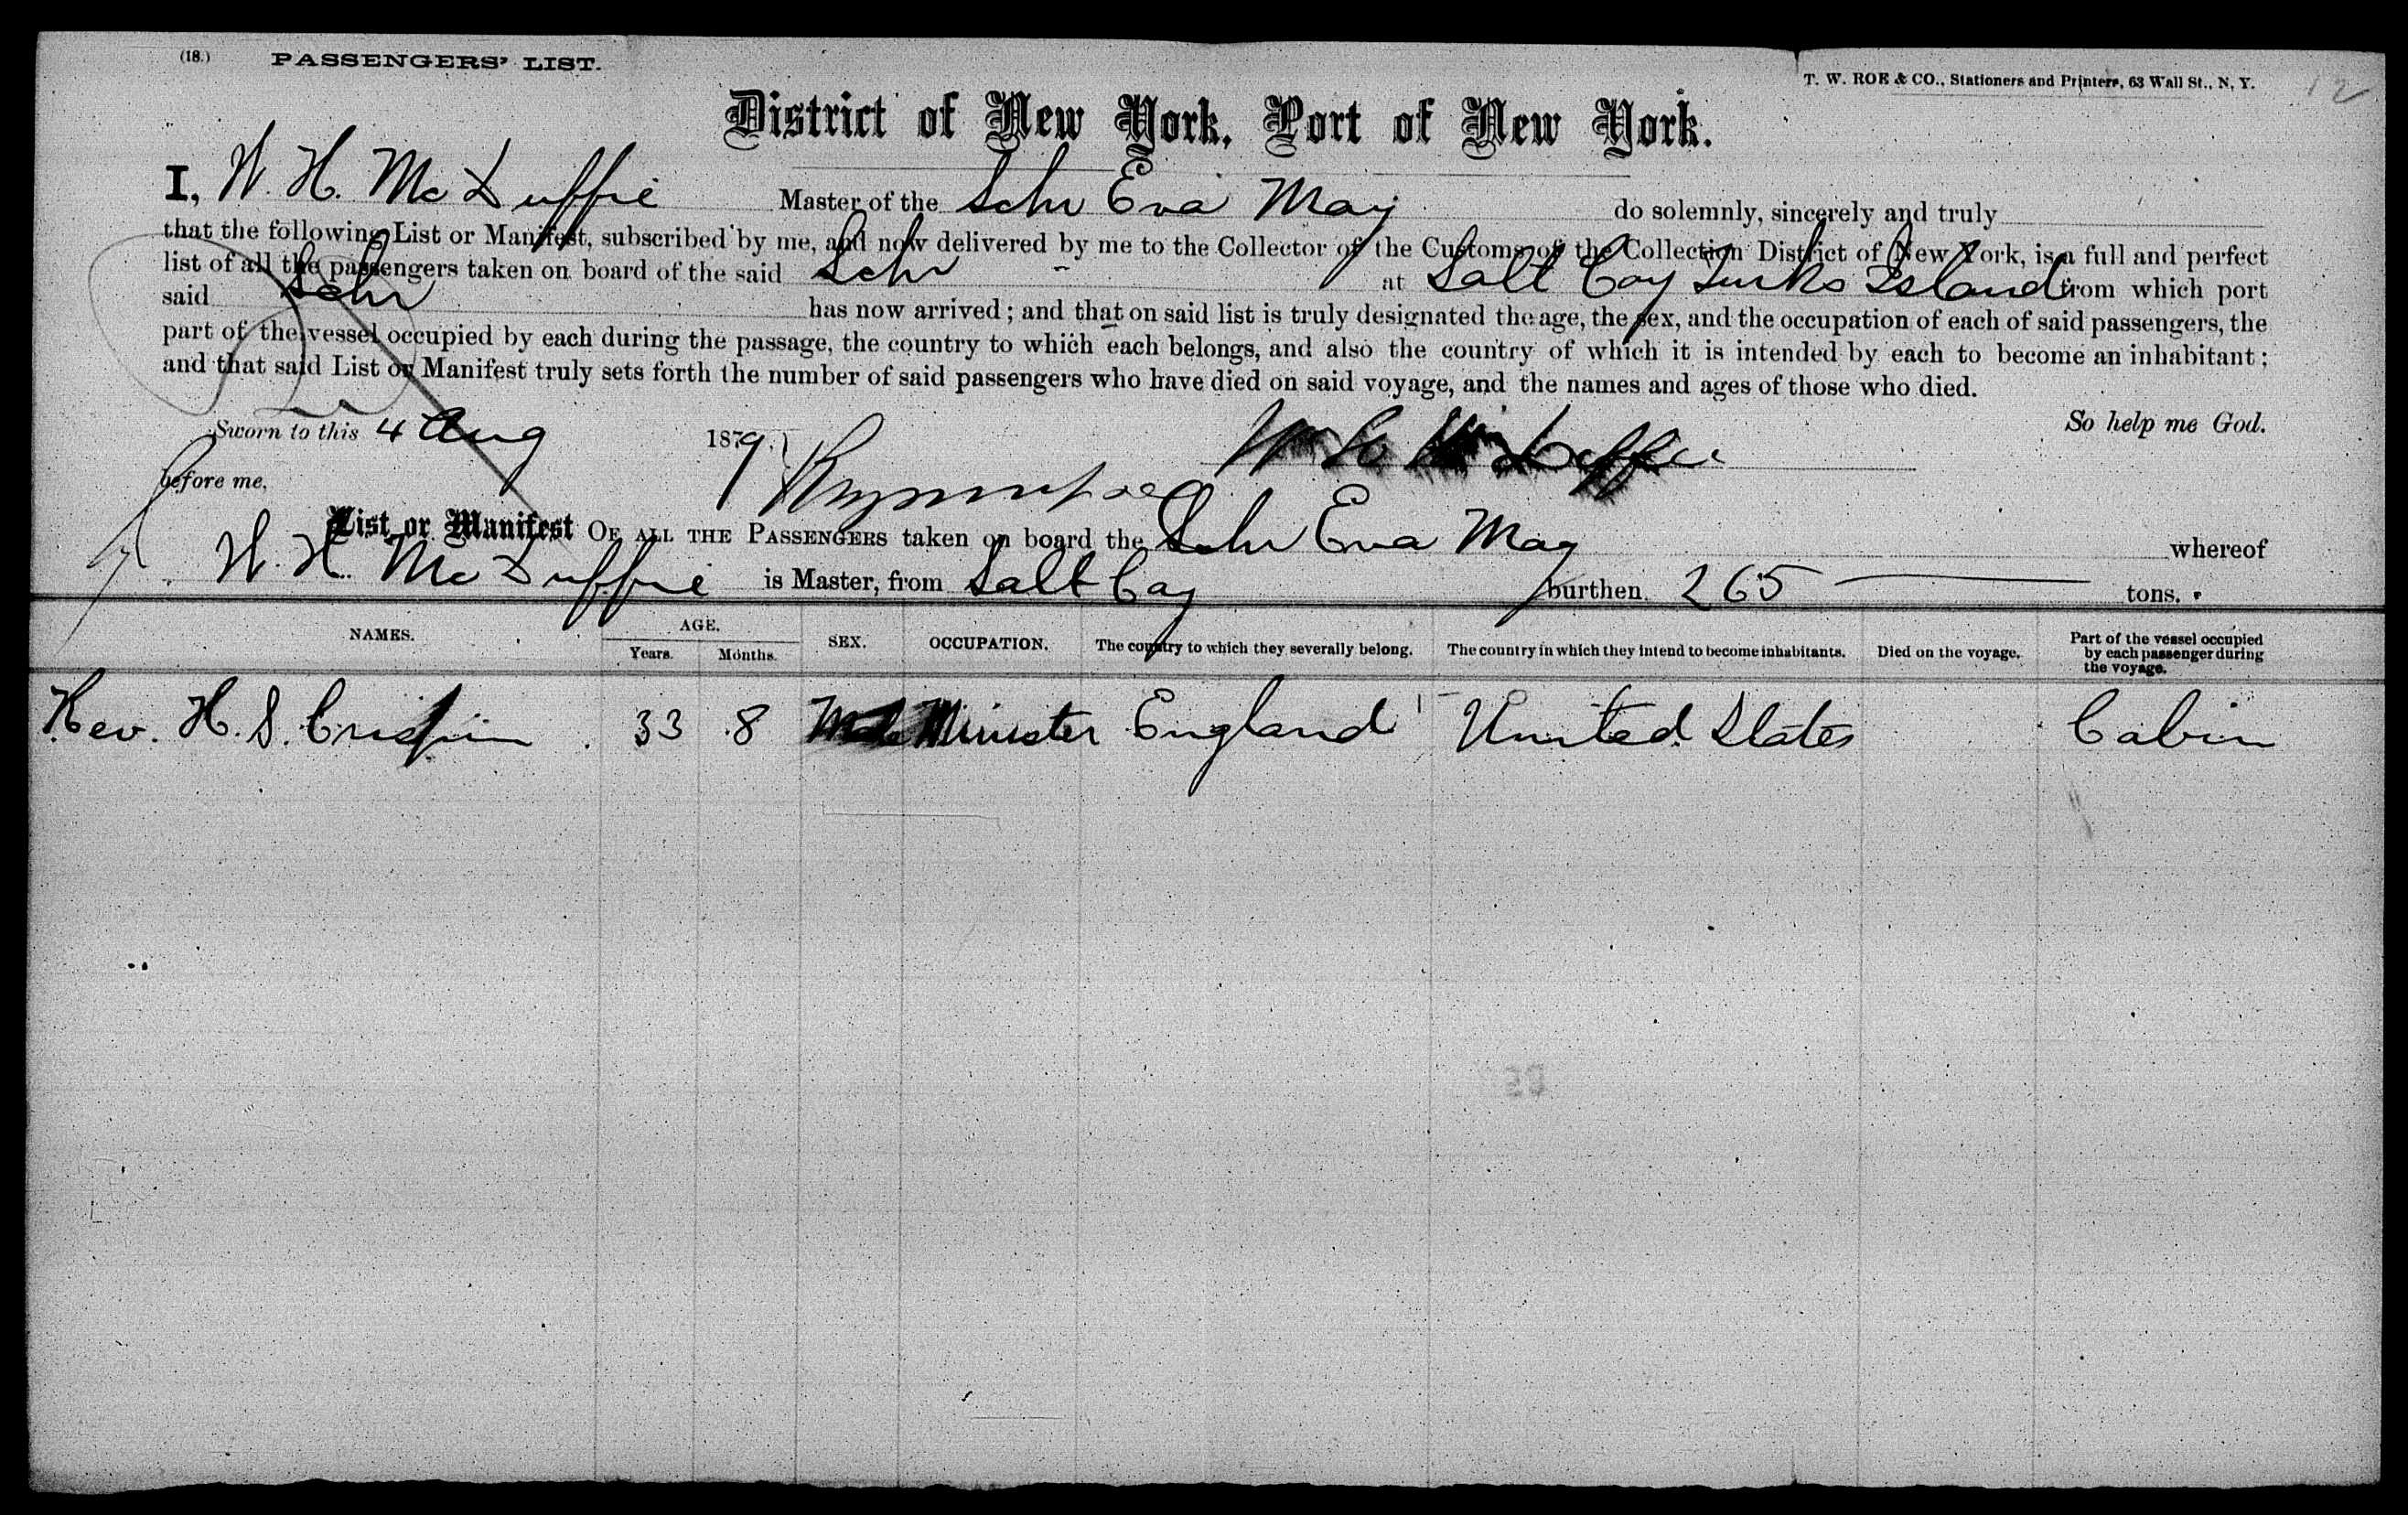 (18.) PASSENGERS' LIST.
T. W. ROE & CO., Stationers and Printers, 63 Wall St., N. Y.
12
District of New York, Port of New York.
I, W. H. McDuffie Master of the Schr Eva May do solemnly, sincerely and truly
that the following List or Manifest, subscribed by me, and now delivered by me to the Collector of the Customs of the Collection District of New York, is a full and perfect
list of all the passengers taken on board of the said Schr at Salt Cay Turks Island from which port
said Schr has now arrived; and that on said list is truly designated the age, the sex, and the occupation of each of said passengers, the
part of the vessel occupied by each during the passage, the country to which each belongs, and also the country of which it is intended by each to become an inhabitant;
and that said List or Manifest truly sets forth the number of said passengers who have died on said voyage, and the names and ages of those who died.
So help me God.
Sworn to this 4 Aug 1879
before me,
List or Manifest OF ALL THE PASSENGERS taken on board the Schr Eva May whereof
W. H. McDuffie is Master, from Salt Cay burthen 265 tons.
NAMES. AGE. Years. Months. SEX. OCCUPATION. The country to which they severally belong. The country in which they intend to become inhabitants. Died on the voyage. Part of the vessel occupied by each passenger during the voyage.
Rev. H. S. Crispin 33 8 Male Minister England United States Cabin